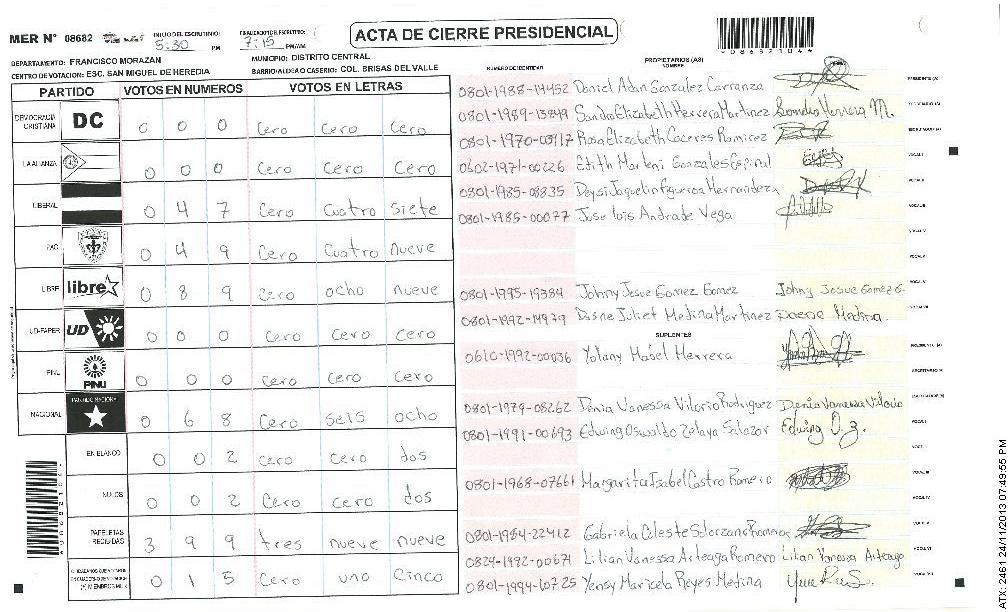 MER N° 08682 INICIO DEL ESCRUTINIO: 5:30 PM FINALIZACION ESCRUTINIO: 7:15 PM/AM
ACTA DE CIERRE PRESIDENCIAL
086821044
DEPARTAMENTO: FRANCISCO MORAZAN MUNICIPIO: DISTRITO CENTRAL
CENTRO DE VOTACION: ESC. SAN MIGUEL DE HEREDIA BARRIO/ALDEA O CASERIO: COL. BRISAS DEL VALLE
PARTIDO VOTOS EN NUMEROS VOTOS EN LETRAS
DEMOCRACIA CRISTIANA DC 0 0 0 Cero Cero Cero
LA ALIANZA 0 0 0 Cero Cero Cero
LIBERAL 0 4 7 Cero Cuatro siete
PAC 0 4 9 Cero Cuatro nueve
LIBRE libre 0 8 9 Cero ocho nueve
UD-FAPER UD 0 0 0 Cero Cero Cero
PINU PINU 0 0 0 Cero Cero Cero
NACIONAL PARTIDO NACIONAL 0 6 8 Cero seis ocho
EN BLANCO 0 0 2 Cero Cero dos
NULOS 0 0 2 Cero cero dos
PAPELETAS RECIBIDAS 3 9 9 tres nueve nueve
0 1 5 Cero uno Cinco
NUMERO DE IDENTIDAD PROPIETARIOS (AS) NOMBRE
0801-1988-14452 Daniel Adan Gonzalez Carranza PRESIDENTE (A)
0801-1989-13849 Sandra Elizabeth Herrera Martinez Herrera M. SECRETARIO (A)
0801-1970-03917 Rosa Elizabeth Caceres Ramirez ESCRUTADOR (A)
0602-1971-00226 Edith Marleni Gonzales Espinal VOCAL I
0801-1985-08835 Deysi Jaquelin Figueroa Hernandez VOCAL II
0801-1985-00077 Jose luis Andrade Vega VOCAL III
VOCAL IV
VOCAL V
0801-1995-19384 Johny Josue Gomez Gomez Johny Josue Gomez G.
0801-1992-14979 Juliet Medina Martinez Medina.
SUPLENTES
0610-1992-00036 Yolany Mabel Herrera PRESIDENTE (A)
SECRETARIO (A)
0801-1979-08262 Denia Vanessa Vilorio Rodriguez Denia Vanessa Vilorio ESCRUTADOR (A)
0801-1991-00693 Edwing Oswaldo Zelaya Salazar Edwing O. Z. VOCAL I
VOCAL II
0801-1968-07661 Margarita Isabel Castro Romero VOCAL III
VOCAL IV
0801-1984-22412 Gabriela Celeste Solorzano VOCAL V
0824-1992-00671 Lilian Vanessa Arteaga Romero Lilian Vanessa Arteaga VOCAL VI
0801-1994-10725 Yensy Maricela Reyes Medina
ATX: 2461 24/11/2013 07:49:55 PM